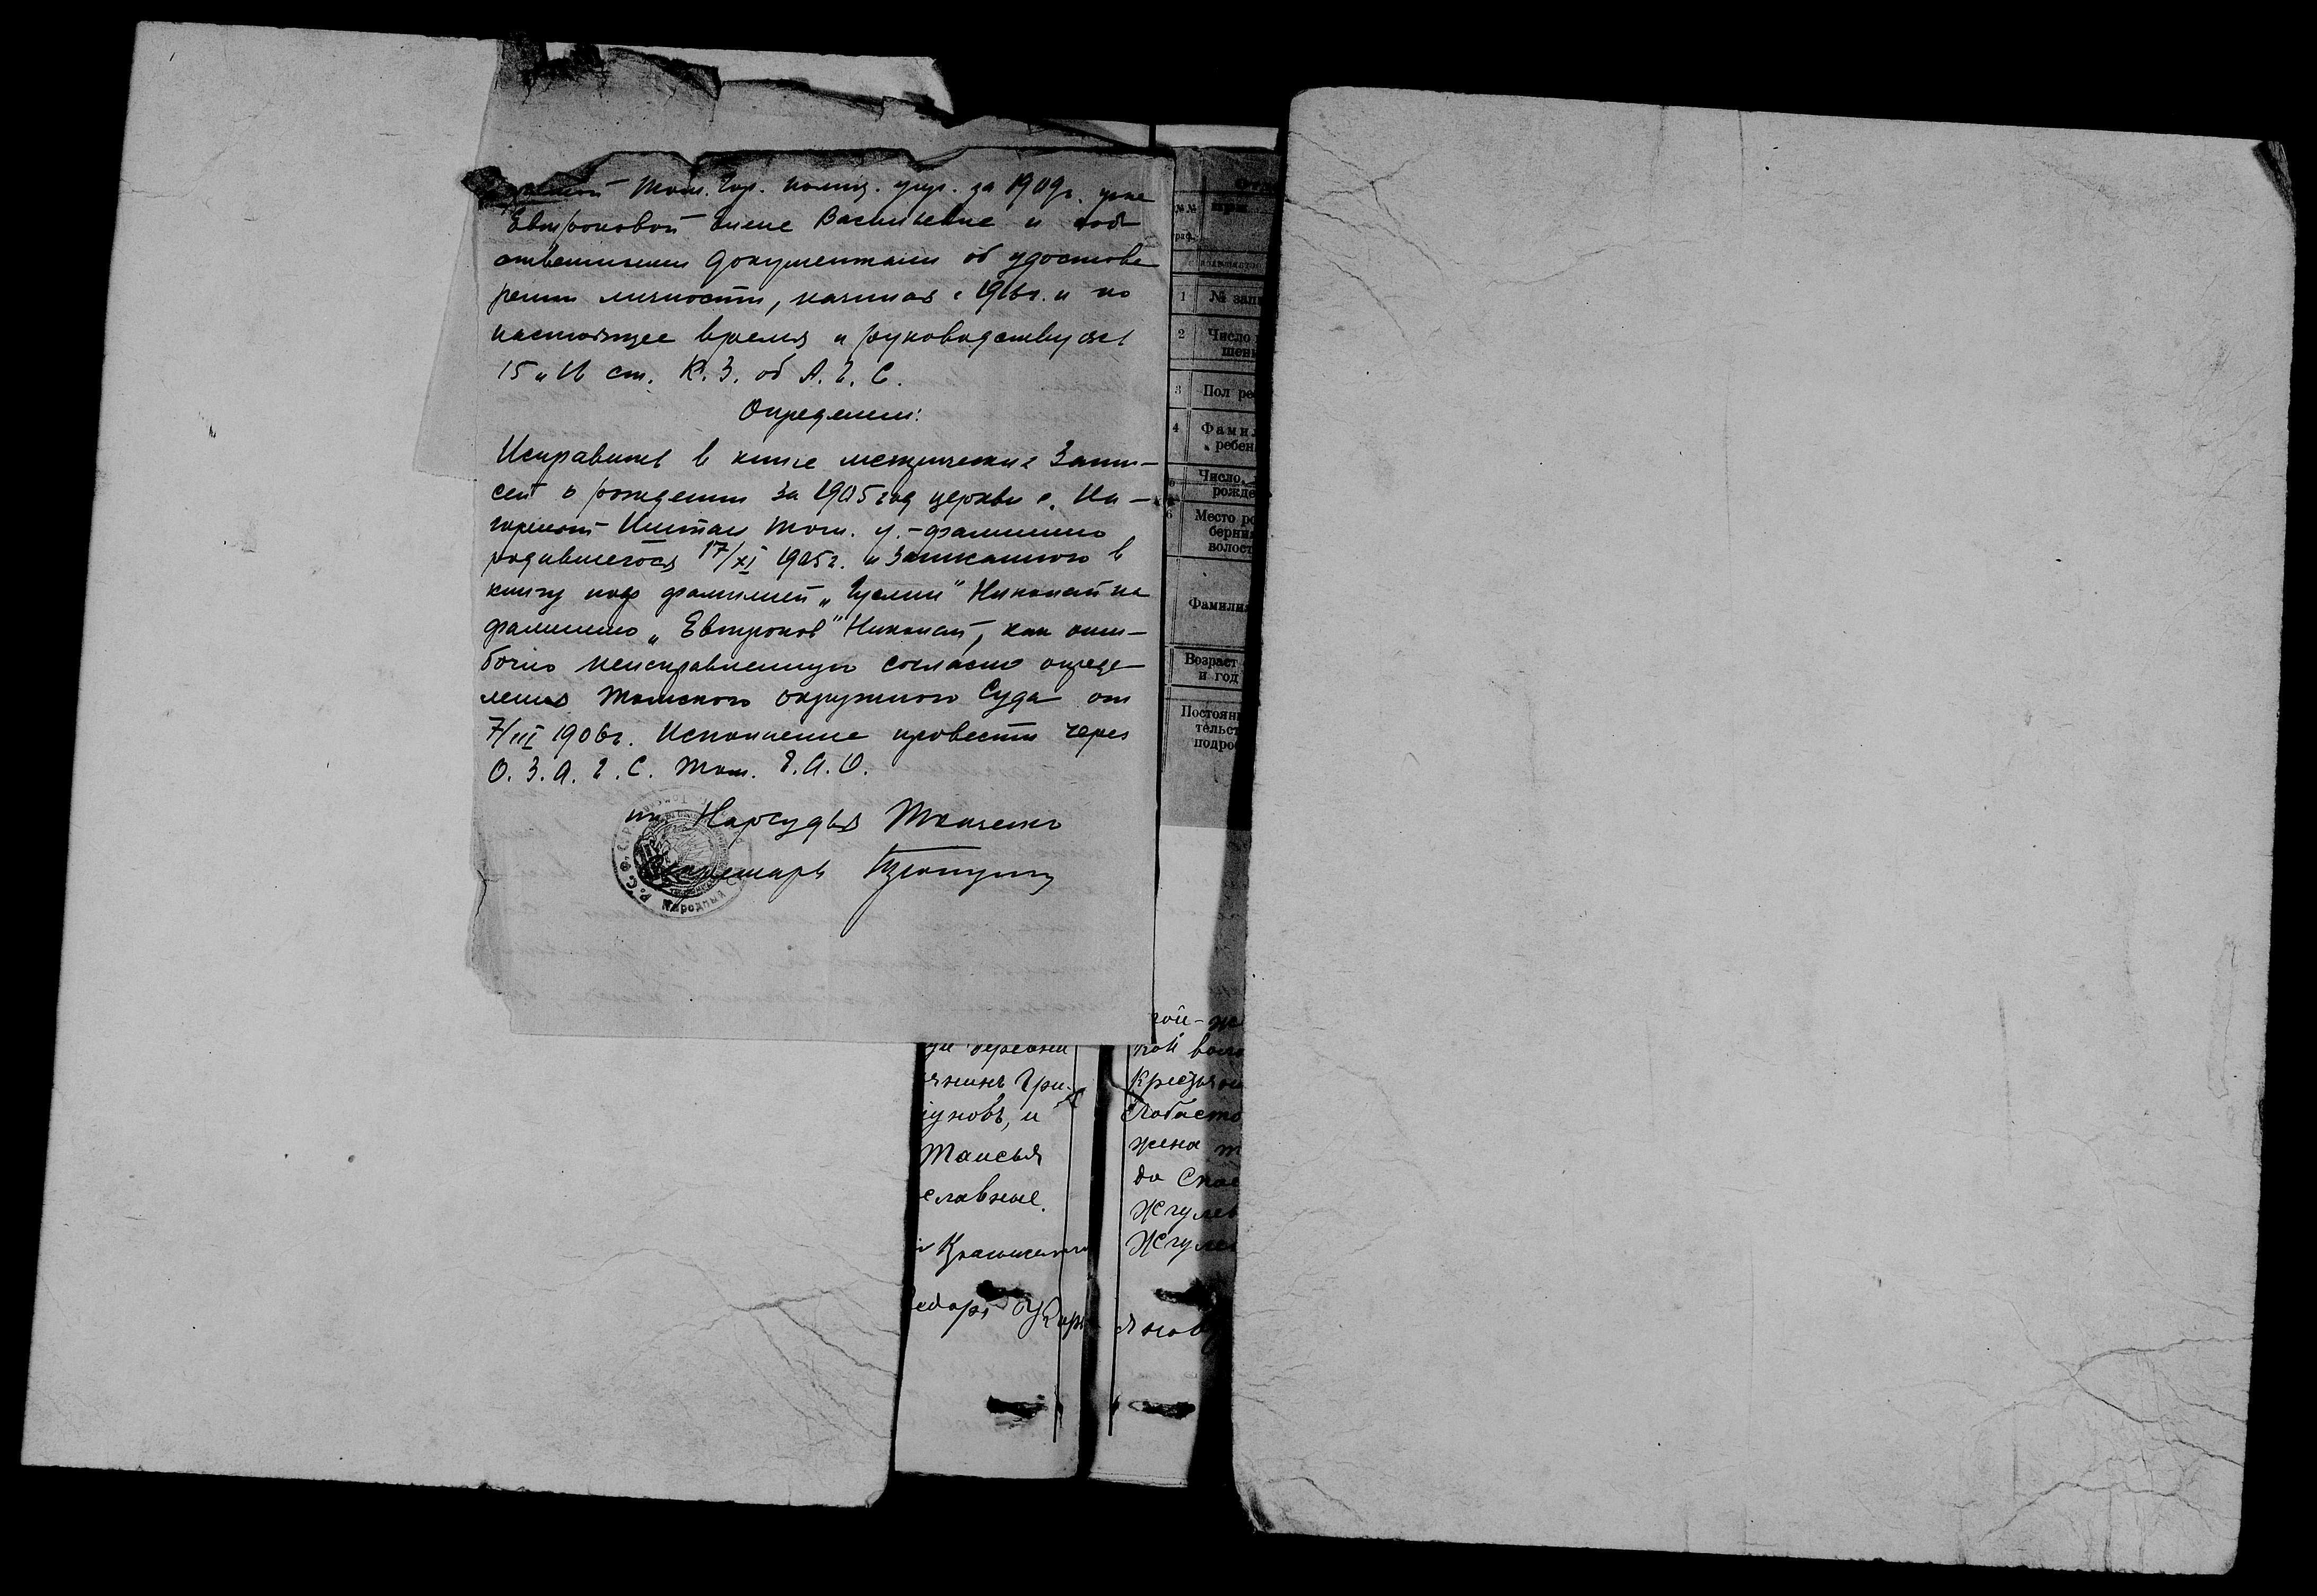 Том. Гор. полиц. упр. за 1909г.
Евтроповой Елене Васильевне и соб
ственными документами об удостове
рении личности, начиная с 1916г. и по
настоящее время и руководствуясь
15 и 16 ст. К.З. об А.Г.С.
Определил:
Исправить в книге метрических Запи-
сей о рождении за 1905 год церкви с.
Том. у. - фамилию
родившегося 17/XI 1905г. и записанного в
книгу под фамилией „ " Николай на
фамилию „Евтропов" Николай, как оши-
бочно неисправленную согласно опреде-
ления Томского окружного Суда от
7/III 1906г. Исполнение провести через
О.З.А.Г.С. Том. Г.А.О.
пп. Нарсудья Ткаченко
Секретарь
Р.С.Ф.С.Р.
Народный
№№
граф.
1 № запи
2 Число
шени
3 Пол ре
4 Фамил
ребен
Число,
рожде
6 Место ро
берни
волост
Фамилия
Возраст
и год
Постоян
тельст
подро
деревни
янинъ Гри-
уновъ, и
Таисья
славные.
гой - же
кой воло
Крестьян
жена т
да Спас
Жгулев
Жгулев